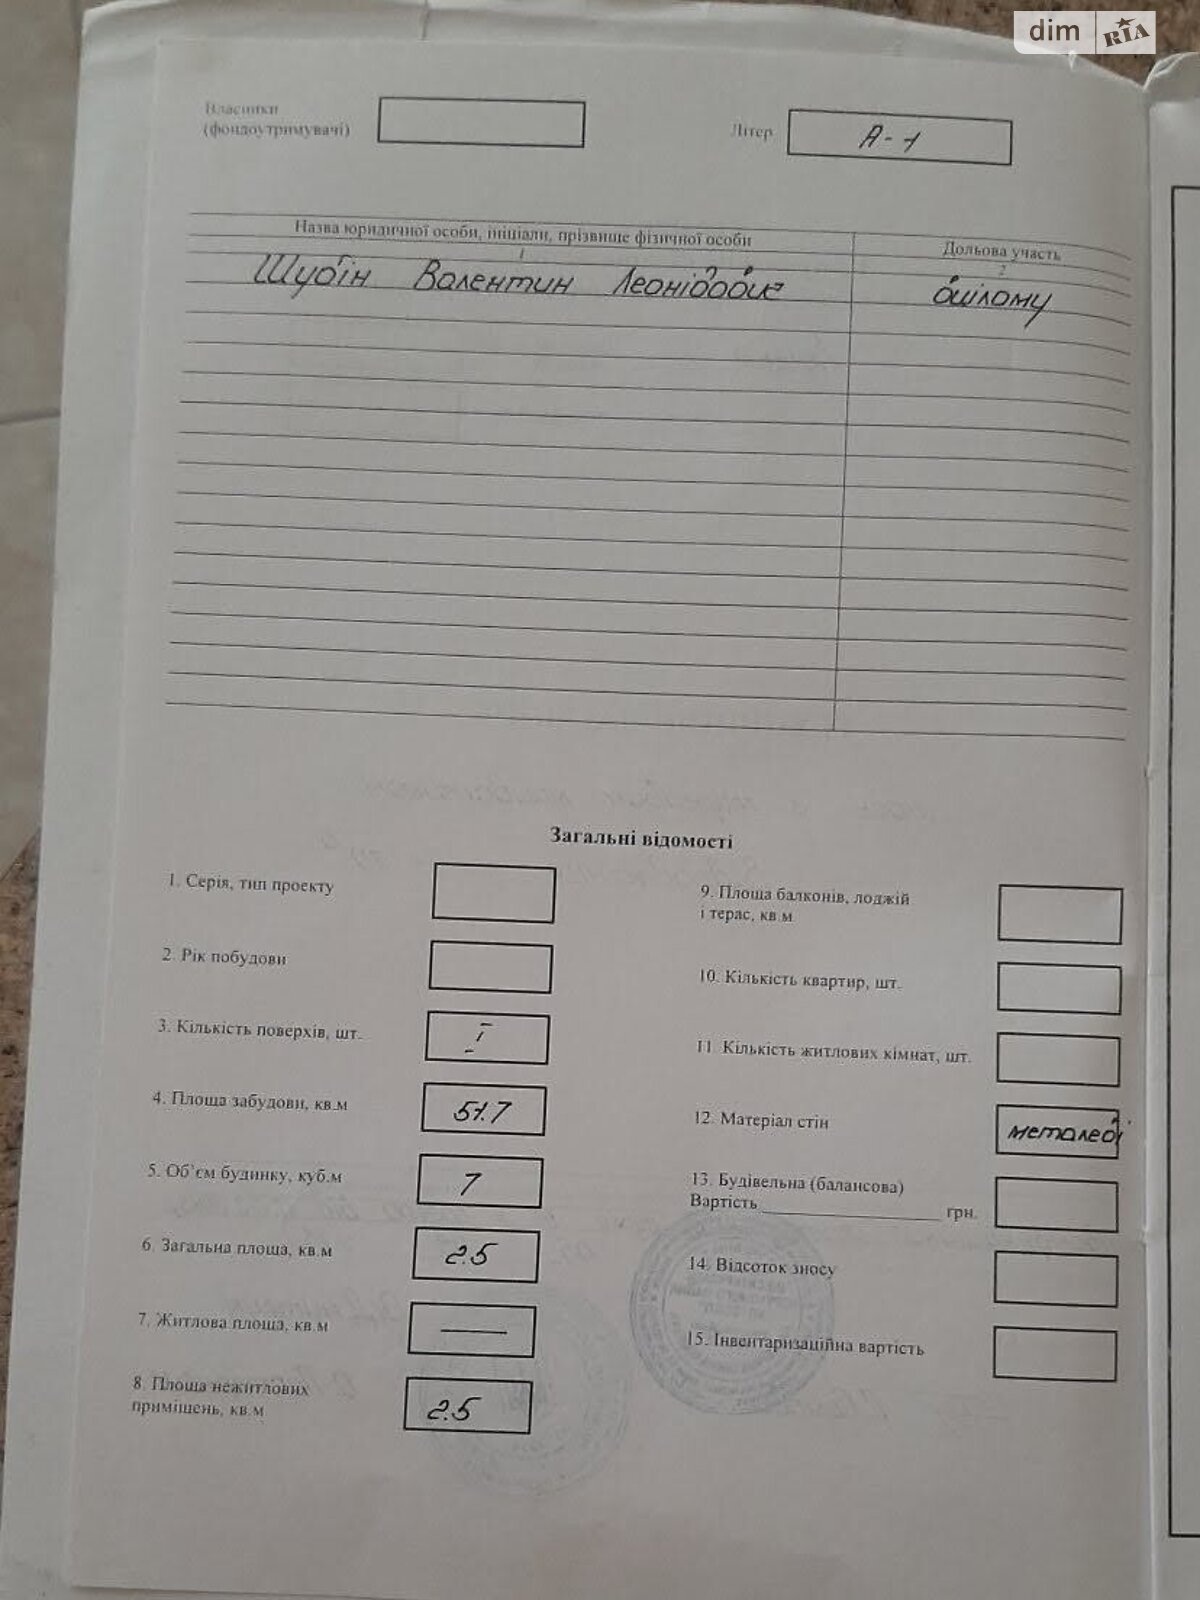 dim RIA
Власники
(фондоутримувачі)
Літер А-1
Назва юридичної особи, ініціали, прізвище фізичної особи Дольова участь
1 2
Шубін Валентин
Загальні відомості
1. Серія, тип проекту
2. Рік побудови
3. Кількість поверхів, шт. I
4. Площа забудови, кв.м
5. Об'єм будинку, куб.м 7
6. Загальна площа, кв.м 2.5
7. Житлова площа, кв.м —
8. Площа нежитлових
приміщень, кв.м 2.5
9. Площа балконів, лоджій
і терас, кв.м
10. Кількість квартир, шт.
11. Кількість житлових кімнат, шт.
12. Матеріал стін
13. Будівельна (балансова)
Вартість ____________ грн.
14. Відсоток зносу
15. Інвентаризаційна вартість